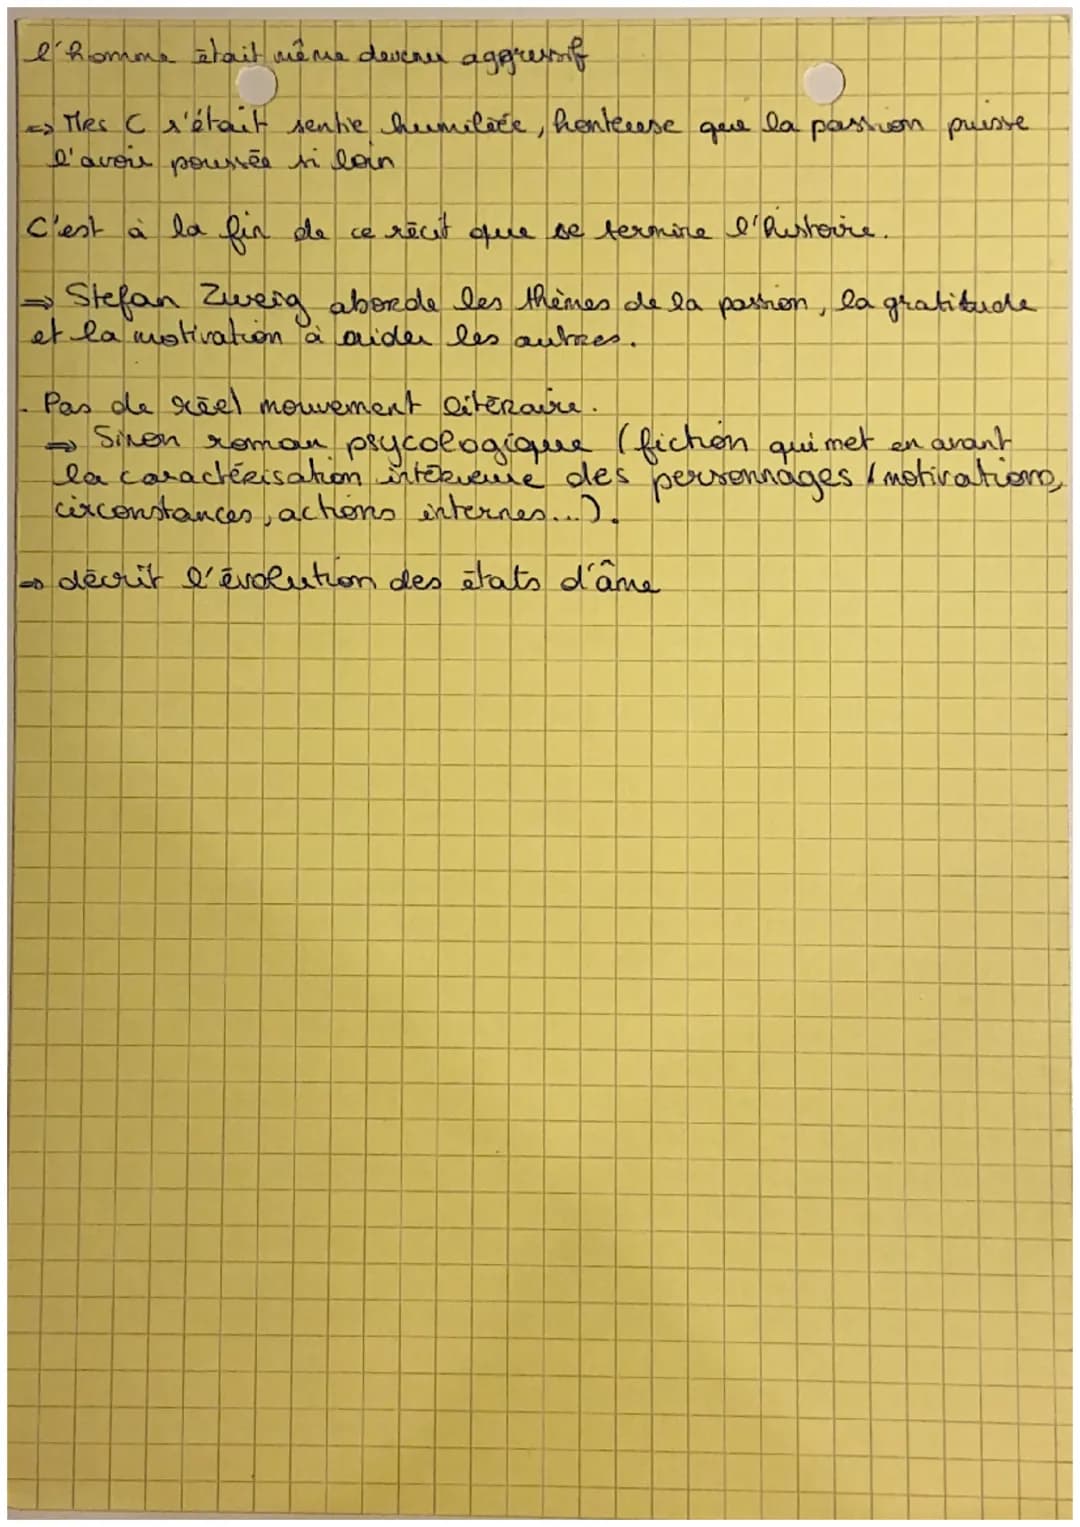 l'homme était même devenu aggressif
=> Mrs C s'était sentie humiliée, honteuse que la passion puisse
l'avoir poussée si loin
C'est à la fin de ce récit que se termine l'histoire.
=> Stefan Zweig aborde les thèmes de la passion, la gratitude
et la motivation à aider les autres.
- Pas de réel mouvement litéraire.
=> Sinon roman psycologique (fiction qui met en avant
la caractérisation intérieure des personnages / motivations,
circonstances, actions internes...).
=> décrit l'évolution des états d'âme